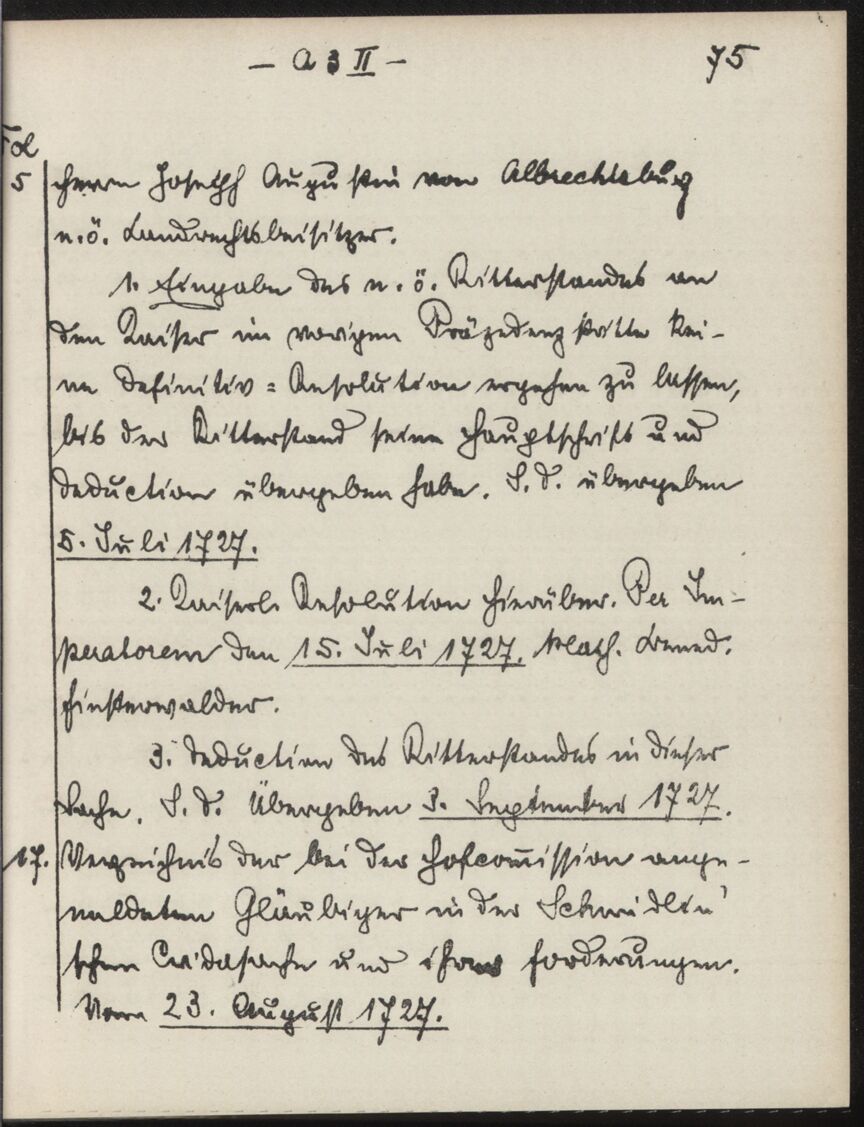 – A 3 II – 75
Fol
5 Herrn Joseph Augustin von Albrechtsburg
n. ö. Landrechtsbeisitzer.
1. Eingabe des n. ö. Ritterstandes an
den Kaiser im vorigen Präzedenzstritte kei-
ne Definitiv = Resolution ergehen zu lassen,
bis der Ritterstand seine Hauptschrift und
Deduction übergeben habe. S. d. übergeben
5. Juli 1727.
2. Kaiserl. Resolution hierüber. Per Im-
peratorem den 15. Juli 1727. Math. Bened.
Finsterwalder.
3. Deduction des Ritterstandes in dieser
Sache. S. d. Übergeben 3. September 1727.
17. Verzeichnis der bei der Hofcom̄ission ange-
meldeten Gläubiger in der Schmidlin'
schen Cridasache und ihrer Forderungen.
Vom 23. August 1727.